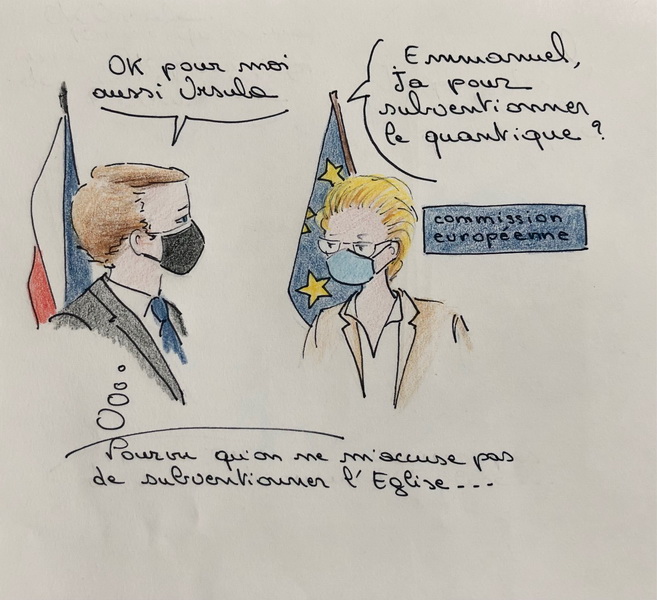 OK pour moi
aussi Ursula
Emmanuel,
Ja pour
subventionner
le quantique ?
commission
européenne
Pourvu qu'on ne m'accuse pas
de subventionner l'Eglise...